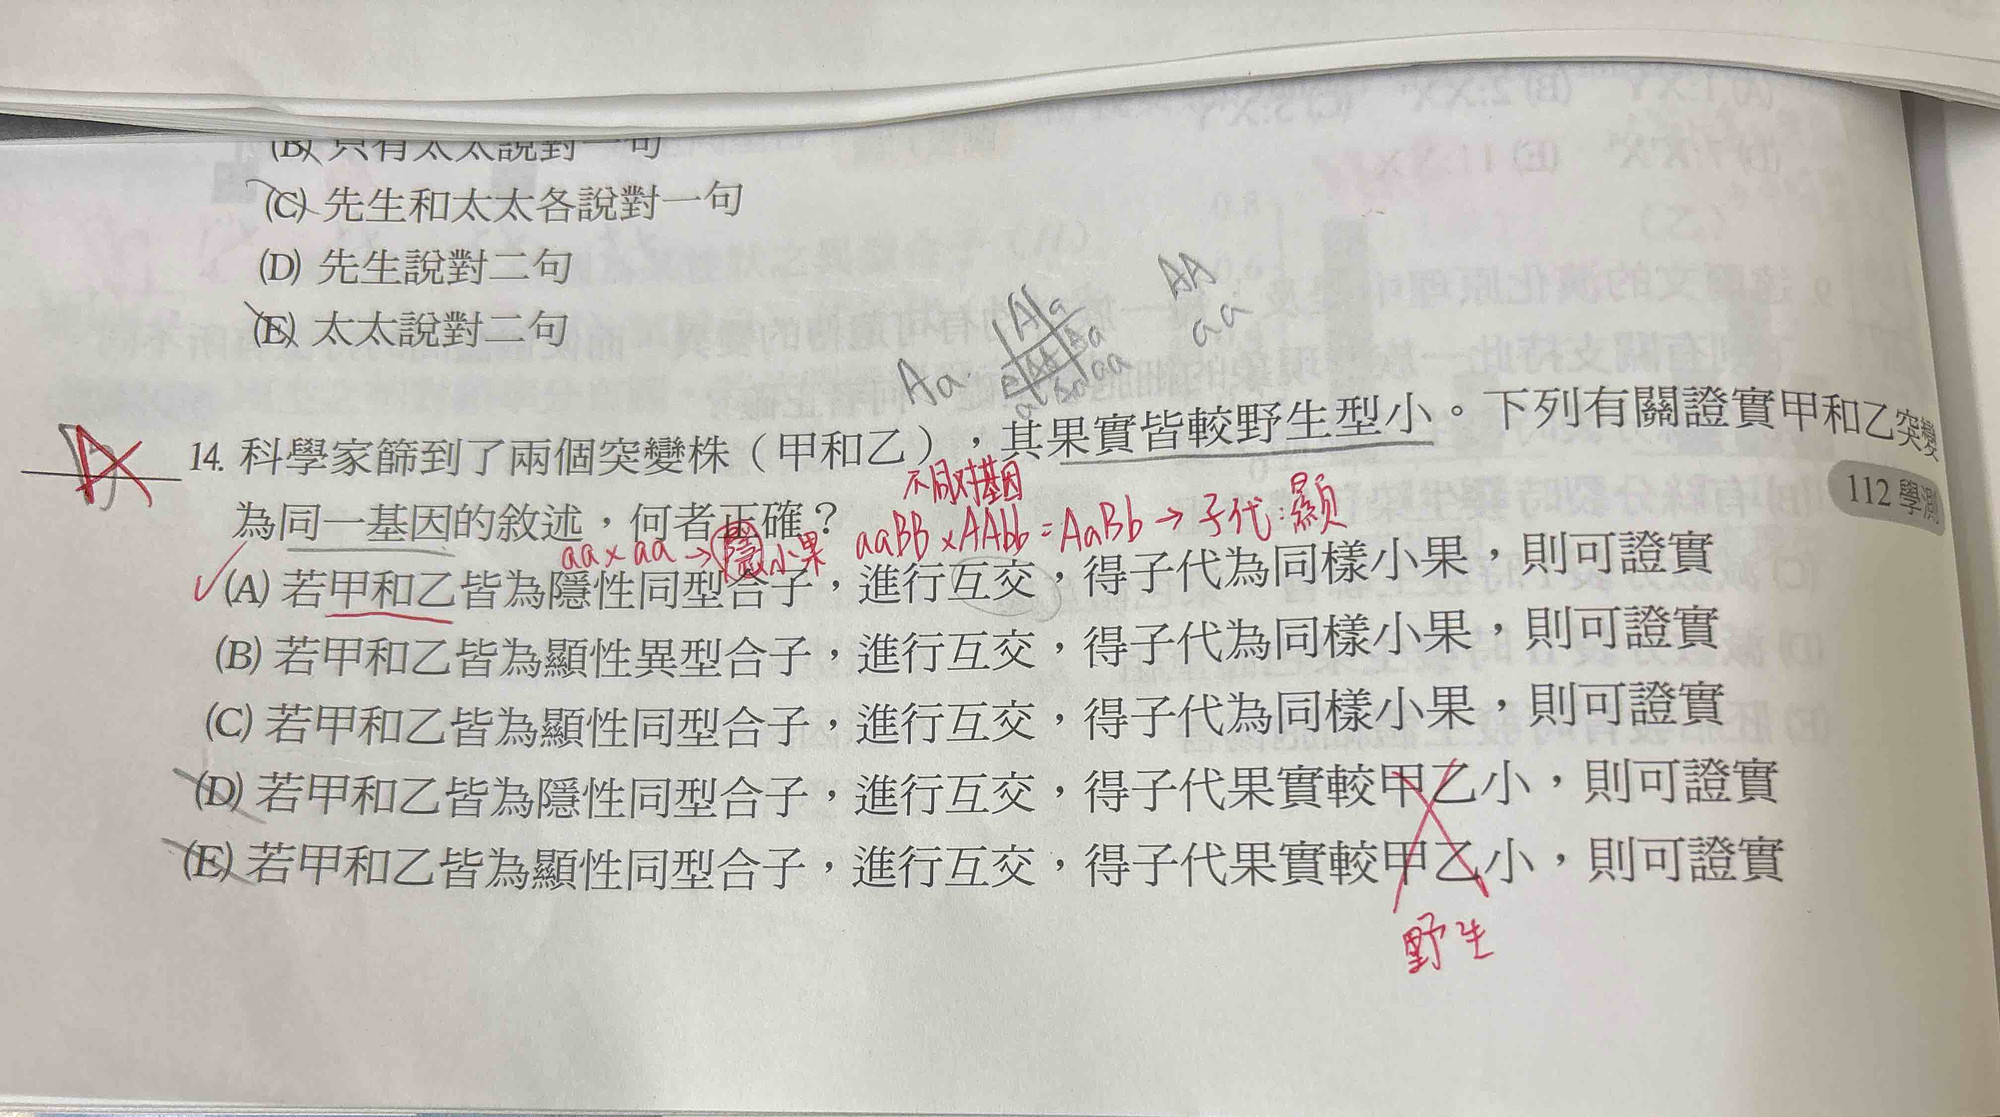 (B) 只有太太說對一句
(C) 先生和太太各說對一句
(D) 先生說對二句
(E) 太太說對二句
AA
aa
Aa
A a
14. 科學家篩到了兩個突變株(甲和乙),其果實皆較野生型小。下列有關證實甲和乙突變
112 學測
不同対基因
為同一基因的敘述,何者正確?
aa x aa → 隱 小果
aaBB x AAbb = AaBb → 子代:顯
(A) 若甲和乙皆為隱性同型合子,進行互交,得子代為同樣小果,則可證實
(B) 若甲和乙皆為顯性異型合子,進行互交,得子代為同樣小果,則可證實
(C) 若甲和乙皆為顯性同型合子,進行互交,得子代為同樣小果,則可證實
(D) 若甲和乙皆為隱性同型合子,進行互交,得子代果實較甲乙小,則可證實
(E) 若甲和乙皆為顯性同型合子,進行互交,得子代果實較甲乙小,則可證實
野生